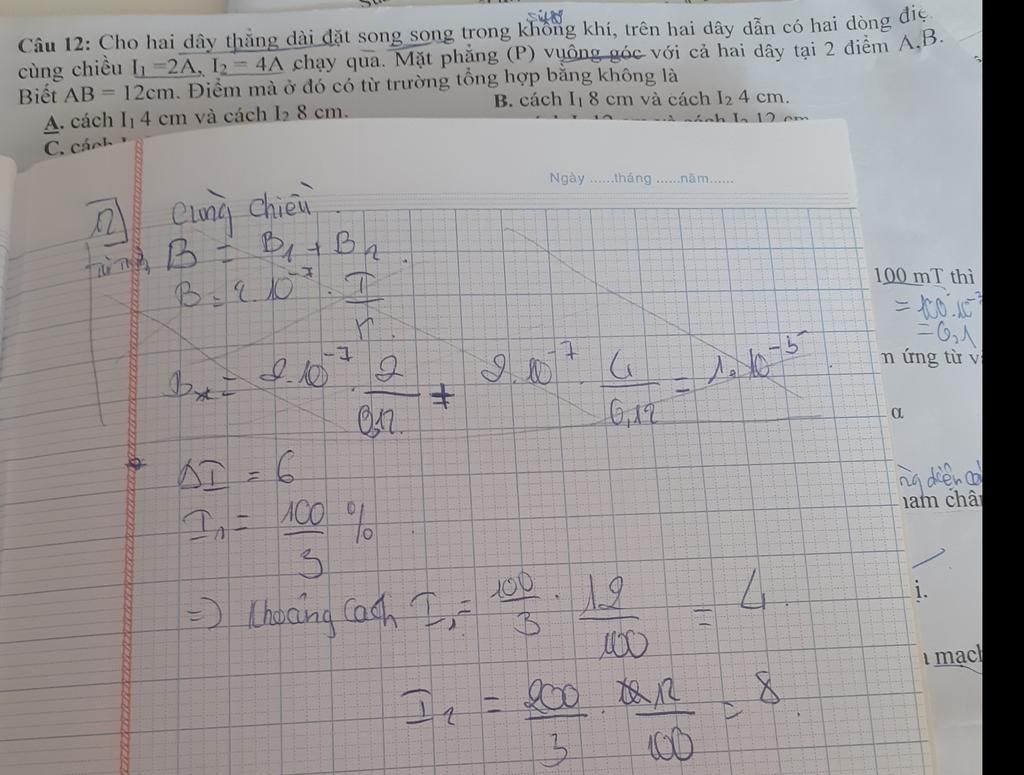 Câu 12: Cho hai dây thẳng dài đặt song song trong không khí, trên hai dây dẫn có hai dòng điệ
cùng chiều I₁ =2A, I₂ = 4A chạy qua. Mặt phẳng (P) vuông góc với cả hai dây tại 2 điểm A,B.
Biết AB = 12cm. Điểm mà ở đó có từ trường tổng hợp bằng không là
A. cách I₁ 4 cm và cách I₂ 8 cm.
B. cách I₁ 8 cm và cách I₂ 4 cm.
C. cách
Ngày ......tháng ......năm......
12 cùng chiều
B = B₁ + B₂
B = 2.10⁻⁷ . I/r
= 2.10⁻⁷ . 2/0,12 + 2.10⁻⁷ . 4/0,12 = 1.10⁻⁵
ΔI = 6
I₁ = 100/3 %
=> khoảng cách I₁ = 100/3 . 12/100 = 4
I₂ = 200/3 . 12/100 = 8
100 mT thì
= 100.10⁻³
= 0,1
n ứng từ v
α
ng điện
nam châ
ị.
mach